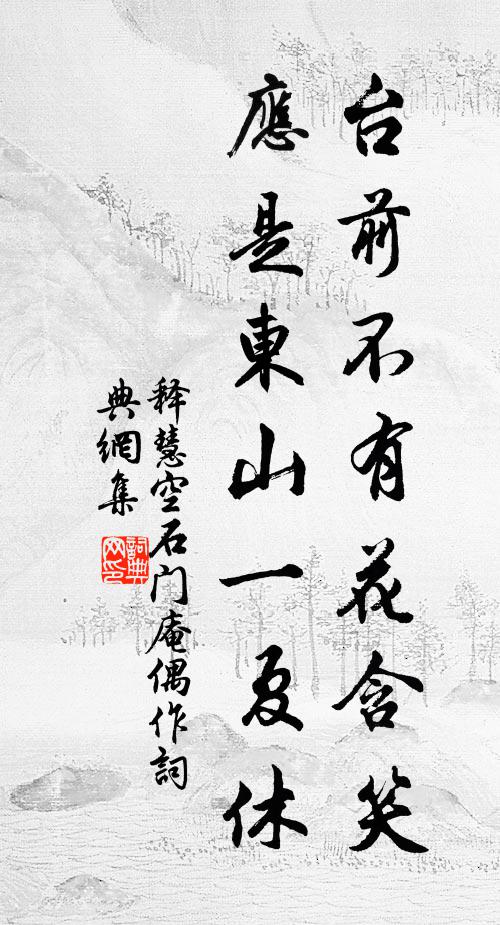 台前不有花含笑
應是東山一夏休
释慧空石门庵偶作詞
典網集
詞典
网印